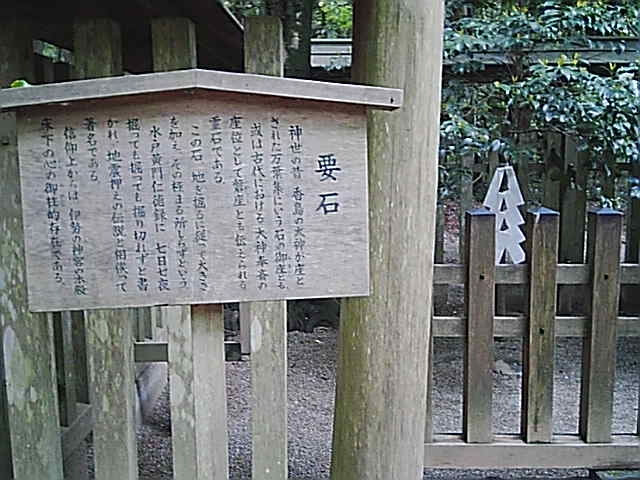 要石
神世の昔 香島の大神が座と
された万葉集にいう石の御座とも
或は古代における大神奉斎の
座位として磐座とも伝えられる
霊石である。
この石、地を掘るに従って大きさ
を加え、その極まる所しらずという。
水戸黄門仁徳録に、七日七夜
掘っても掘っても掘り切れずと書
かれ、地震押えの伝説と相俟って
著名である。
信仰上からは 伊勢の神宮の本殿
床下の心の御柱的存在である。